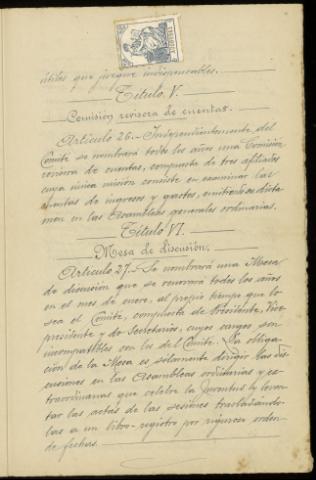 útiles que juzgue indispensables.
Título V.
Comisión revisora de cuentas.
Artículo 26.- Independientemente del
Comité se nombrará todos los años una Comisión
revisora de cuentas, compuesta de tres afiliados
cuya única misión consiste en examinar las
cuentas de ingresos y gastos, emitiendo su dicta
men en las Asambleas generales ordinarias.
Título VI.
Mesa de discusión.
Artículo 27.- Se nombrará una Mesa
de discusión que se renovará todos los años
en el mes de enero, al propio tiempo que lo
sea el Comité, compuesta de Presidente, Vice
presidente y dos Secretarios, cuyos cargos son
incompatibles con los del Comité. La obliga
ción de la Mesa es sólamente dirigir las dis
cusiones en las Asambleas ordinarias y ex
traordinarias que celebre la Juventud y levan
tar las actas de las sesiones trasladándo
las a un libro-registro por riguroso orden
de fechas.